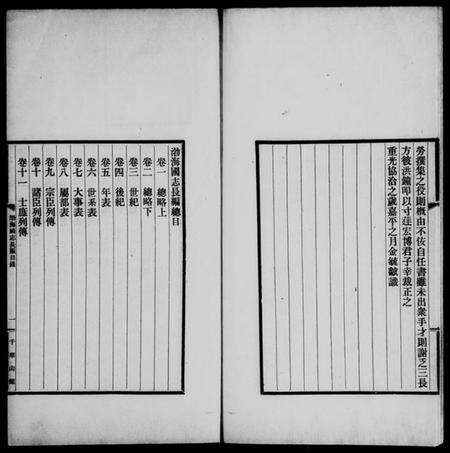 勞撰集之役則概由不佞自任書雖未出衆手才則謝乏三長
方彼洪鐘叩以寸莛宏博君子幸裁正之
重光協洽之歲嘉平之月金毓黻識
渤海國志長編總目
卷一 總略上
卷二 總略下
卷三 世紀
卷四 後紀
卷五 年表
卷六 世系表
卷七 大事表
卷八 屬部表
卷九 宗臣列傳
卷十 諸臣列傳
卷十一 士庶列傳
渤海國志長編目錄
一
千華山館